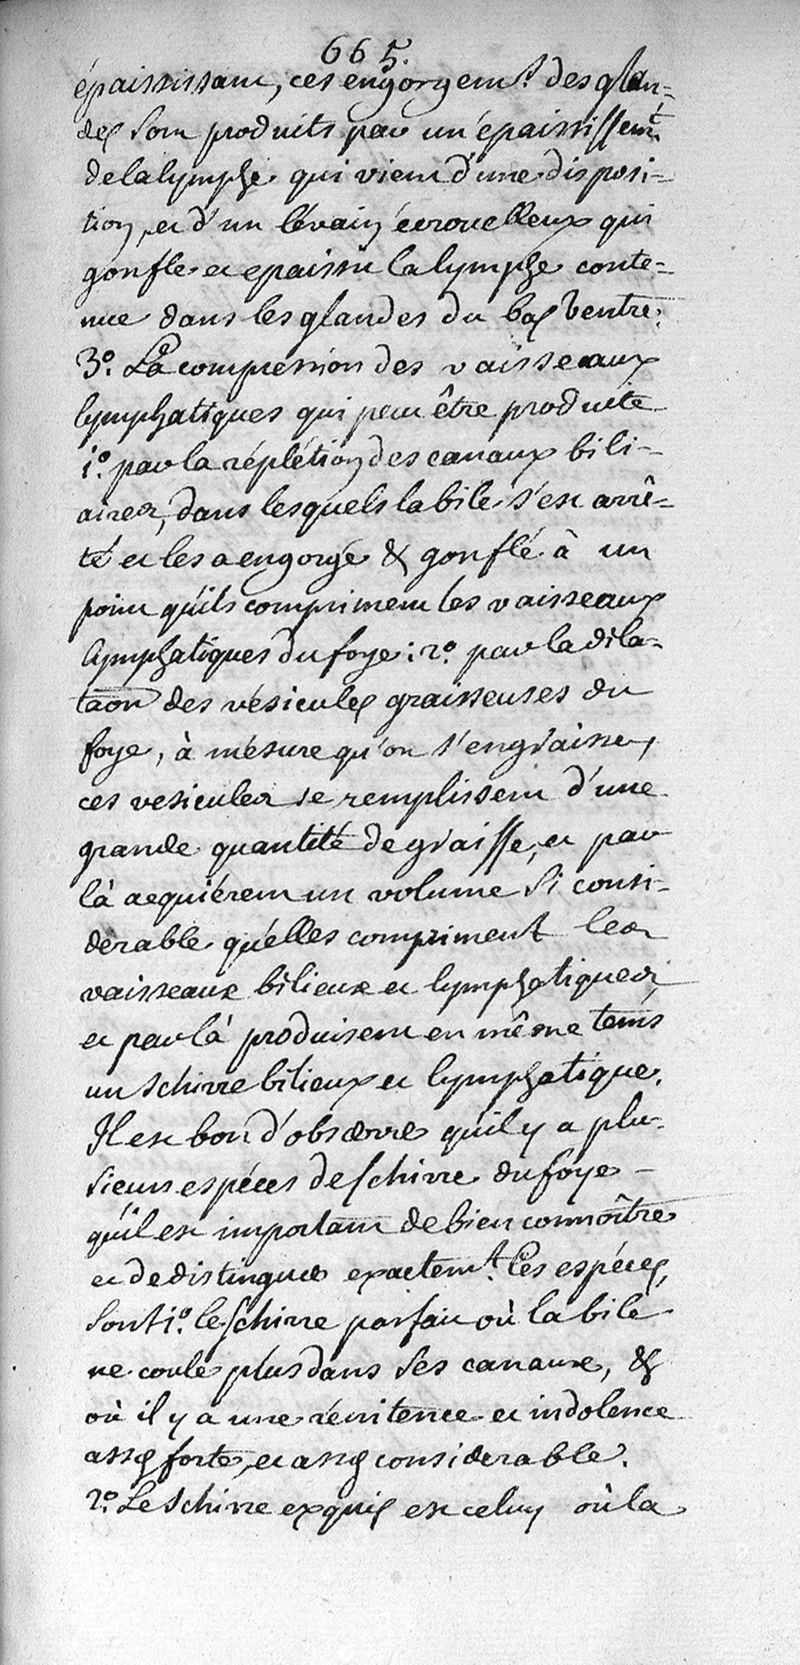 665.
épaississant, ces engorgemt. des glan=
des sont produits par un épaississemt.
de la lymphe qui vient d'une disposi=
tion, et d'un lévain écrouelleux qui
gonfle et epaissit la lymphe conte=
nue dans les glandes du bas ventre.
3°. La compression des vaisseaux
lymphatiques qui peut être produite
1°. par la réplétion des canaux bili=
aires, dans lesquels la bile s'est arrê=
té et les a engorgé & gonflé à un
point qu'ils compriment les vaisseaux
lymphatiques du foye: 2°. par la dila=
taôn des vésicules graisseuses du
foye, à mésure qu'on s'engraisse,
ces vesicules se remplissent d'une
grande quantité de graisse, et par
là acquiérent un volume si consi=
derable qu'elles compriment les
vaisseaux bilieux et lymphatiques,
et par là produisent en même tems
un schirre bilieux et lymphatique.
Il est bon d'observer qu'il y a plu=
sieurs espéces de schirre du foye –
qu'il est important de bien connoître
et de distinguer exactemt. Ces espéces,
sont 1°. le schirre parfait où la bile
ne coule plus dans ses canaux, &
où il y a une rénitence et indolence
assés forte, et assés considerable.
2°. Le schirre exquis est celuy où la